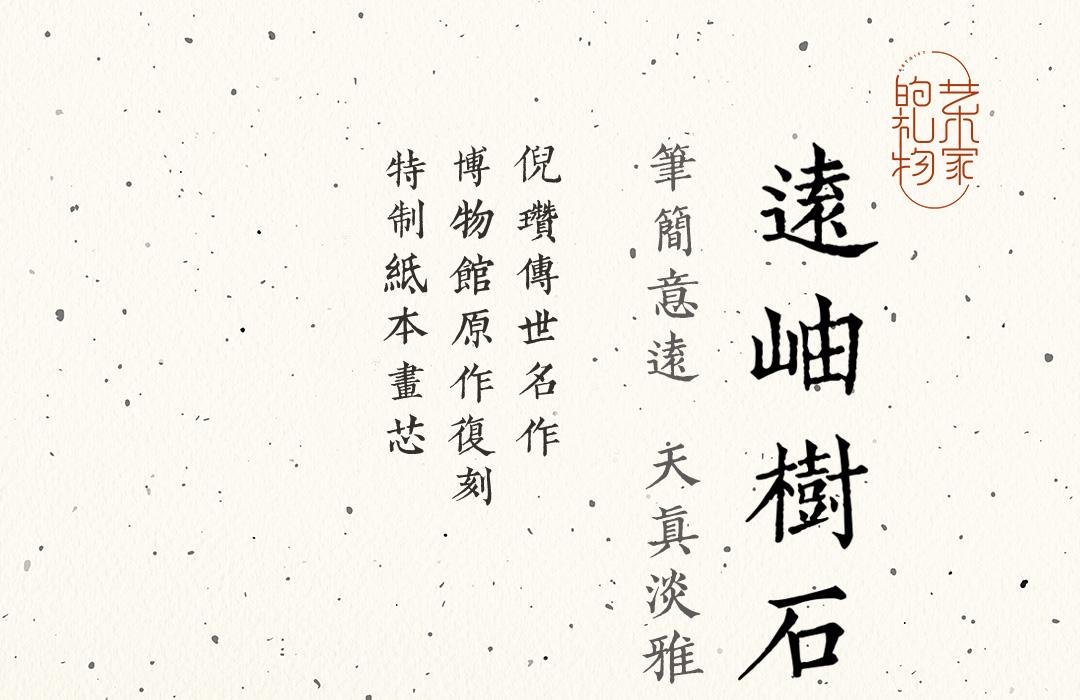 艺术家
的礼物
遠岫樹石
筆簡意遠 天眞淡雅
倪瓚傳世名作
博物館原作復刻
特制紙本畫芯